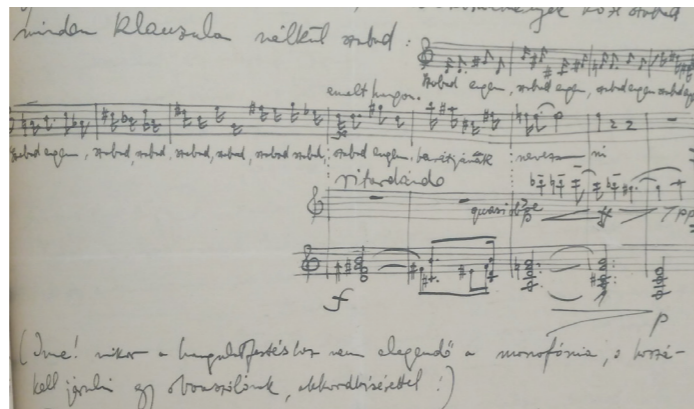 minden klauzula nélkül szabad :
szabad egyen, szabad egyen, szabad egyen
emelt hangon.
szabad egyen, szabad, szabad, szabad, szabad, szabad szabad, szabad egyen. barátjának nevezni
ritardando
quasi
ff
pp
f
p
(Íme! mikor a hangulatfestéshez nem elegendő a monofónia, s hozzá-
kell járulni egy oboaszólónak, akkordkísérettel!)